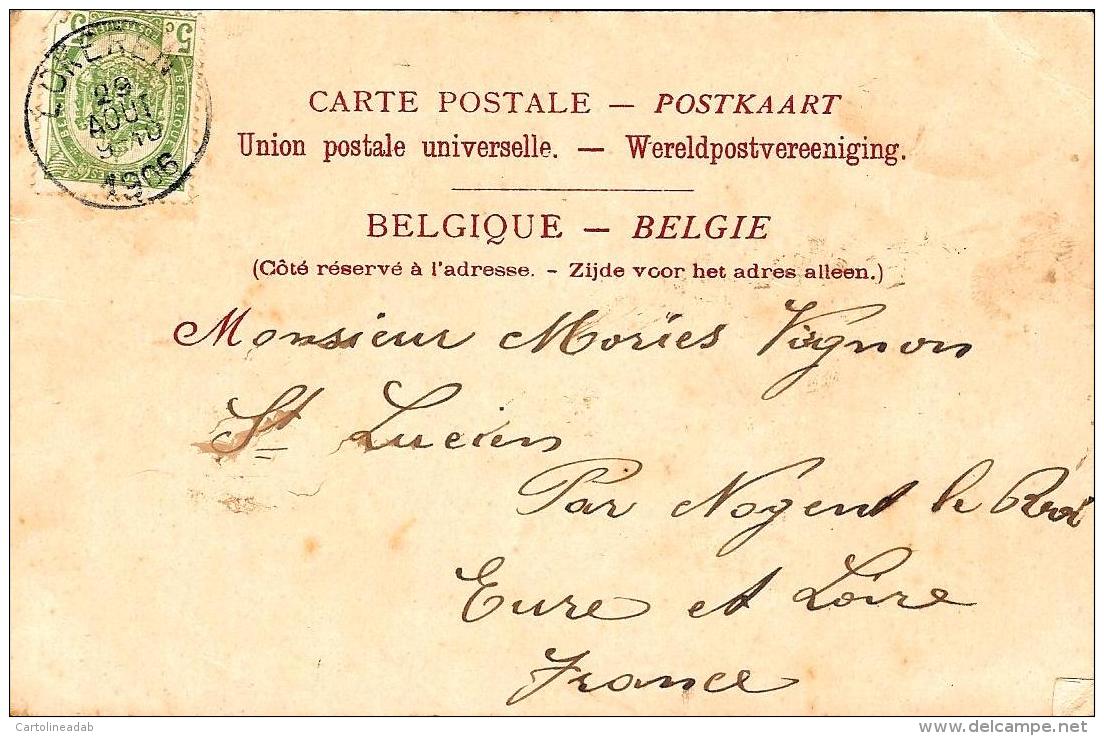 5 c 5
BELGIQUE
LOKEREN
29
AOUT
1906
CARTE POSTALE — POSTKAART
Union postale universelle. — Wereldpostvereeniging.
BELGIQUE — BELGIE
(Côté réservé à l'adresse. - Zijde voor het adres alleen.)
Monsieur Moriës Vignon
St Lucien
Par Nogent le Roi
Eure et Loire
France
Cartolineadab
delcampe.net